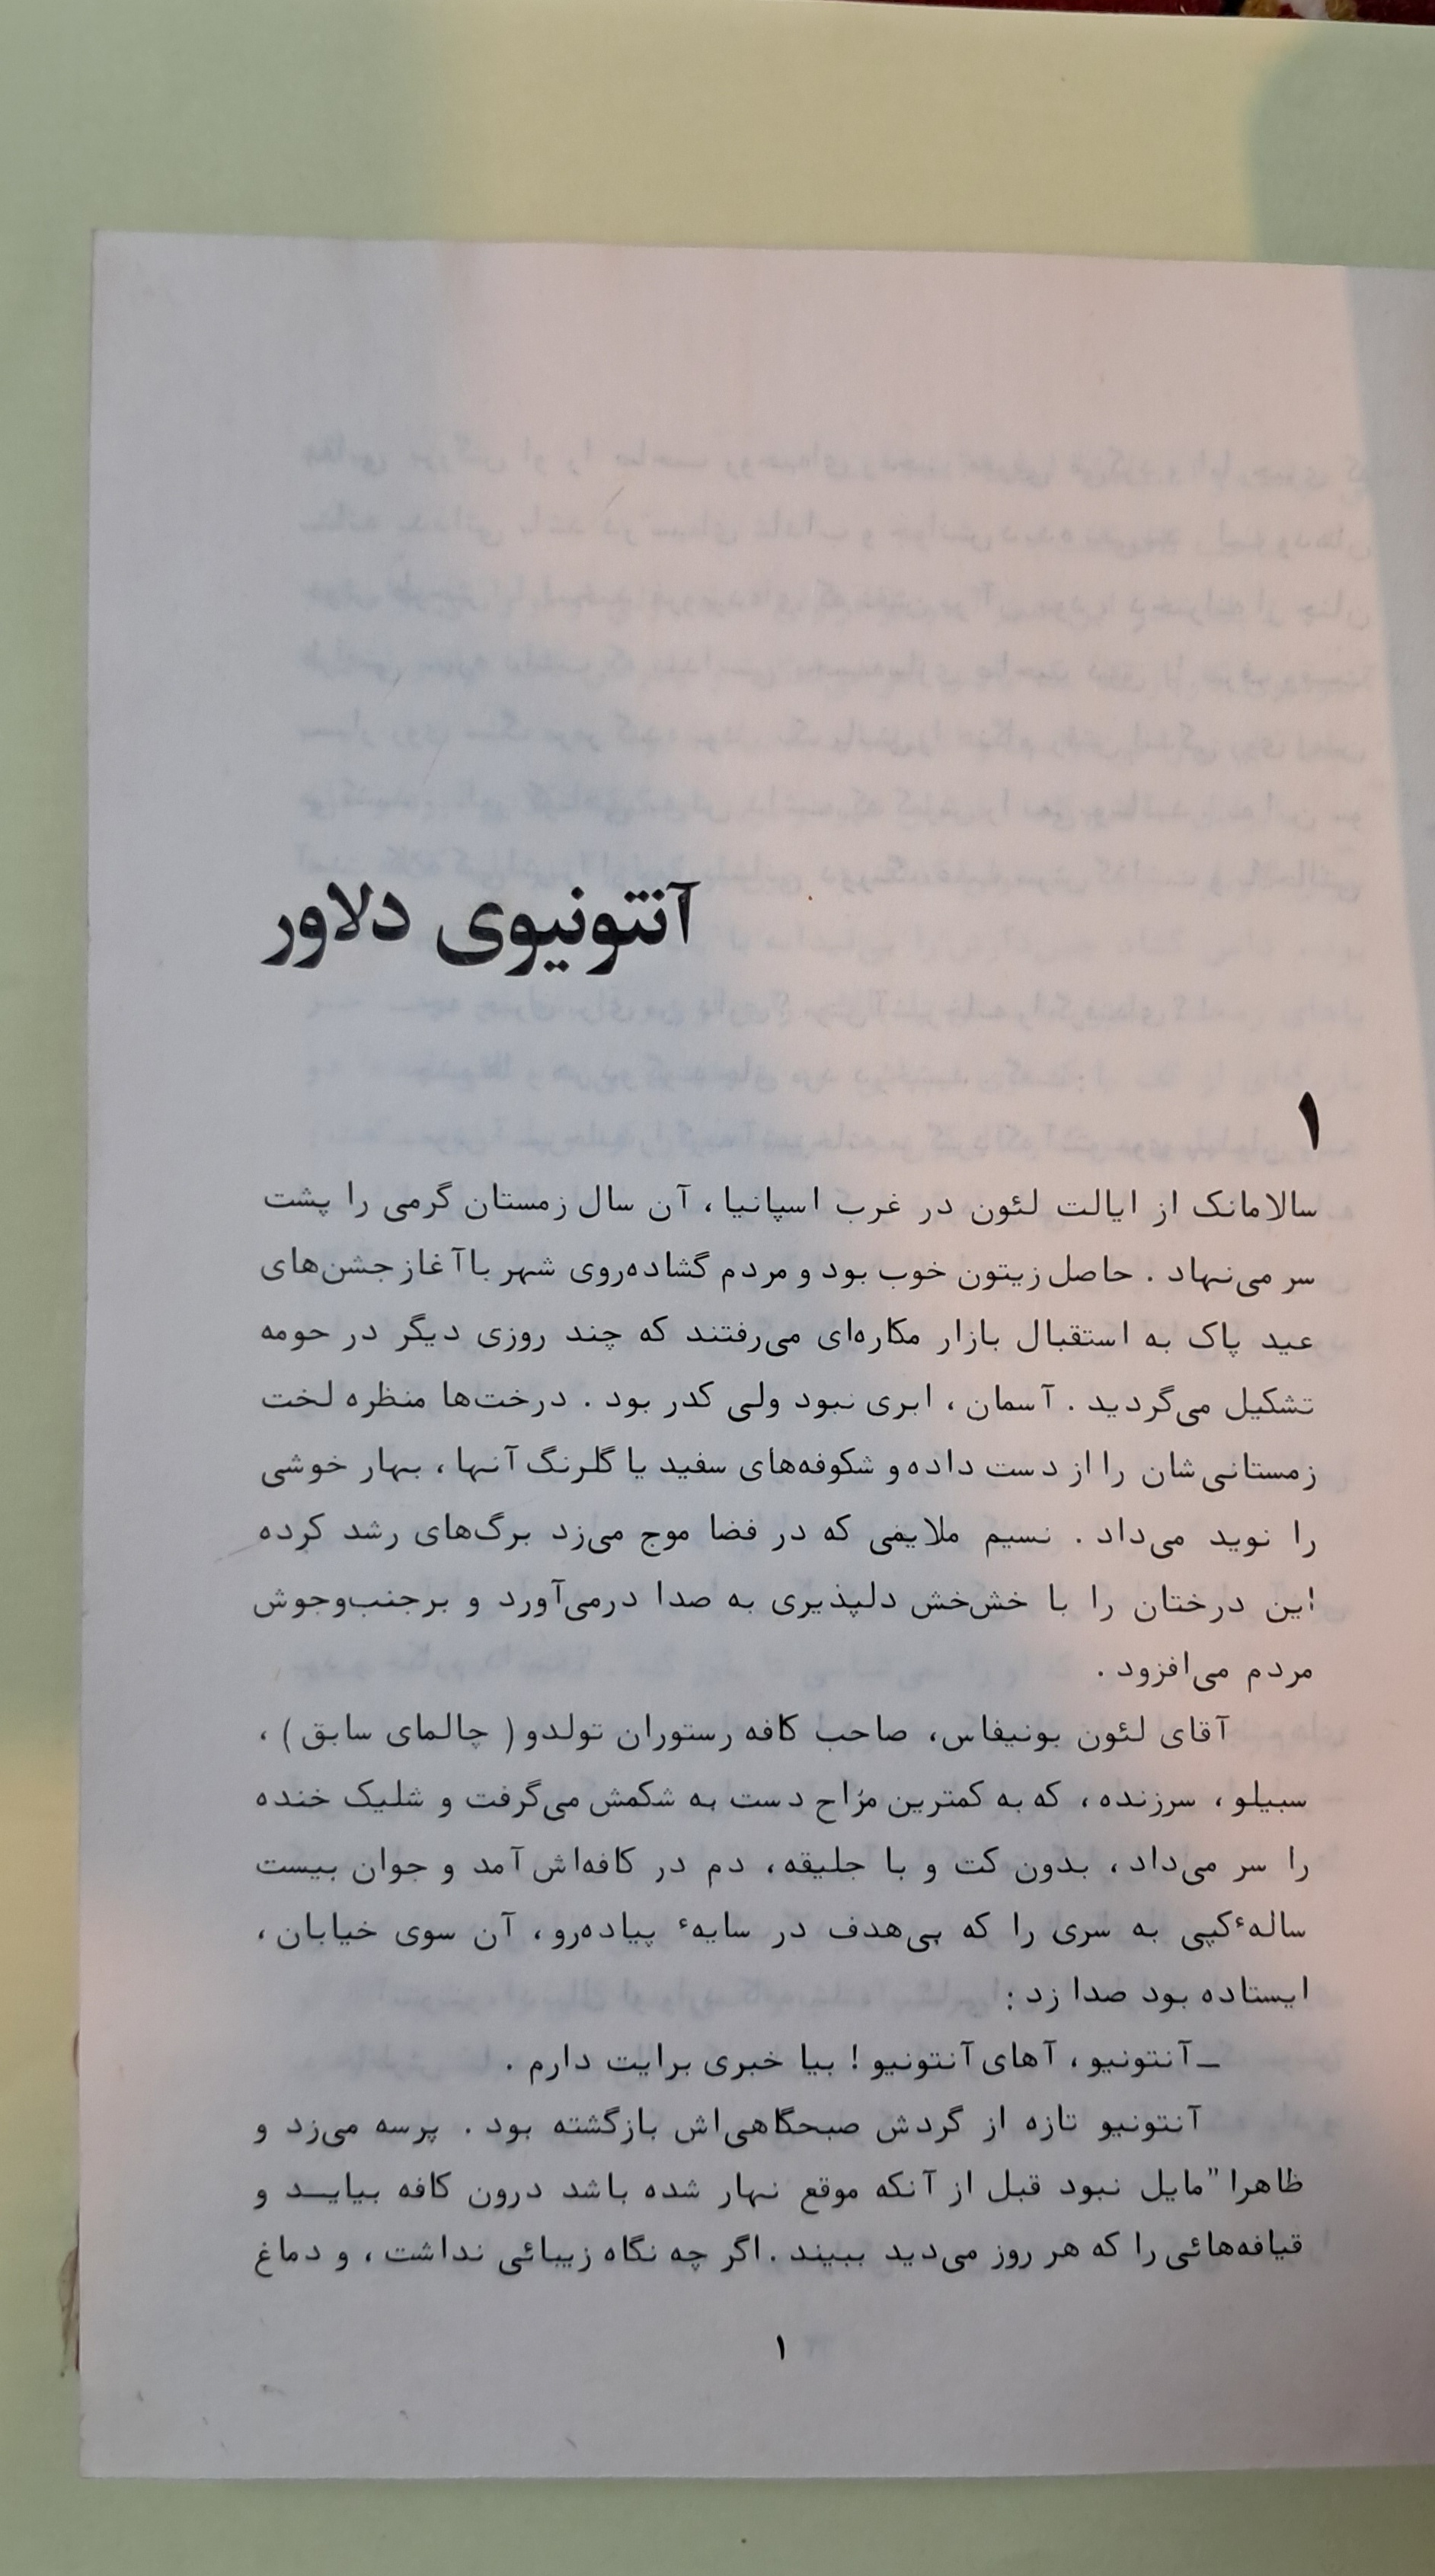 آنتونیوی دلاور
۱
سالامانک از ایالت لئون در غرب اسپانیا، آن سال زمستان گرمی را پشت
سر می‌نهاد . حاصل زیتون خوب بود و مردم گشاده‌روی شهر با آغاز جشن‌های
عید پاک به استقبال بازار مکاره‌ای می‌رفتند که چند روزی دیگر در حومه
تشکیل می‌گردید . آسمان ، ابری نبود ولی کدر بود . درخت‌ها منظره لخت
زمستانی‌شان را از دست داده و شکوفه‌های سفید یا گلرنگ آنها ، بهار خوشی
را نوید می‌داد . نسیم ملایمی که در فضا موج می‌زد برگ‌های رشد کرده
این درختان را با خش‌خش دلپذیری به صدا درمی‌آورد و برجنب‌وجوش
مردم می‌افزود .
آقای لئون بونیفاس، صاحب کافه رستوران تولدو ( چالمای سابق ) ،
سبیلو ، سرزنده ، که به کمترین مزاح دست به شکمش می‌گرفت و شلیک خنده
را سر می‌داد ، بدون کت و با جلیقه ، دم در کافه‌اش آمد و جوان بیست
سالهٔ کپی به سری را که بی‌هدف در سایهٔ پیاده‌رو ، آن سوی خیابان ،
ایستاده بود صدا زد :
ــ آنتونیو ، آهای آنتونیو ! بیا خبری برایت دارم .
آنتونیو تازه از گردش صبحگاهی‌اش بازگشته بود . پرسه می‌زد و
ظاهرا" مایل نبود قبل از آنکه موقع نهار شده باشد درون کافه بیایـد و
قیافه‌هائی را که هر روز می‌دید ببیند . اگر چه نگاه زیبائی نداشت ، و دماغ
۱